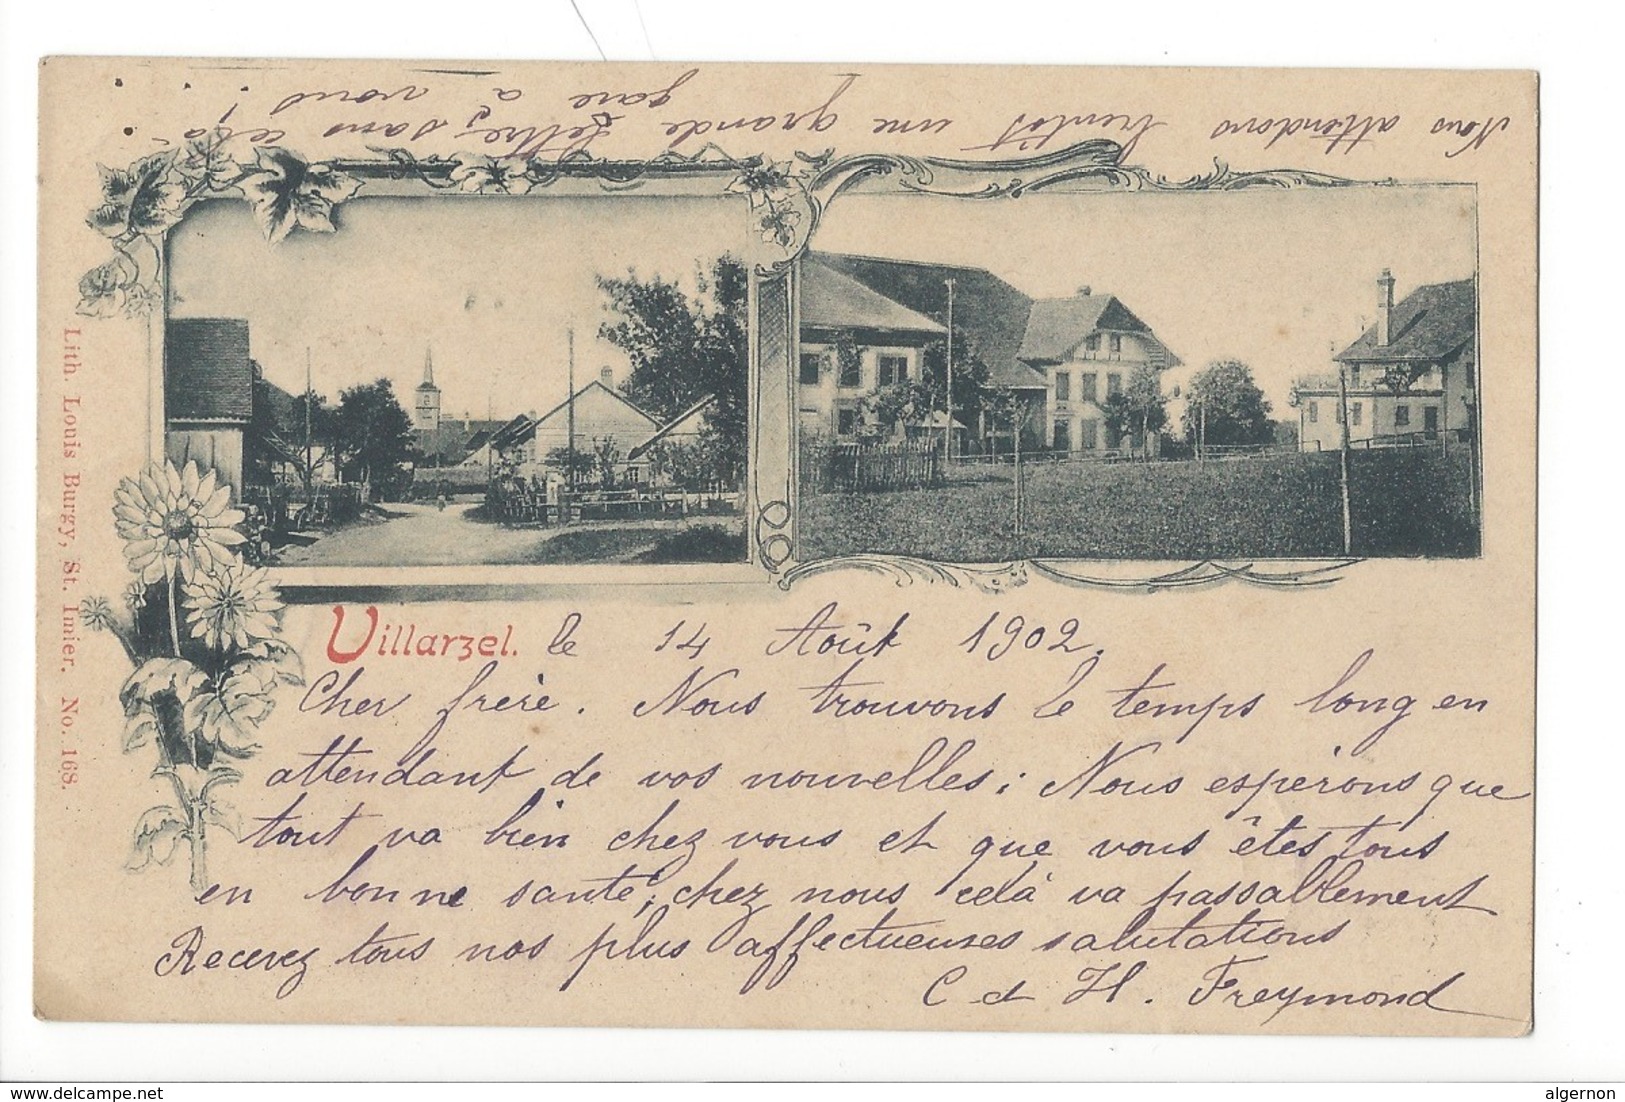 Nous attendons bientôt une grande lettre, sans celà
gare à vous !
Villarzel. le 14 Août 1902.
Cher frère. Nous trouvons le temps long en
attendant de vos nouvelles; Nous espèrons que
tout va bien chez vous et que vous êtes tous
en bonne santé; chez nous celà va passablement
Recevez tous nos plus affectueuses salutations
C et H. Freymond
Lith. Louis Burgy, St. Imier. No. 168.
algernon